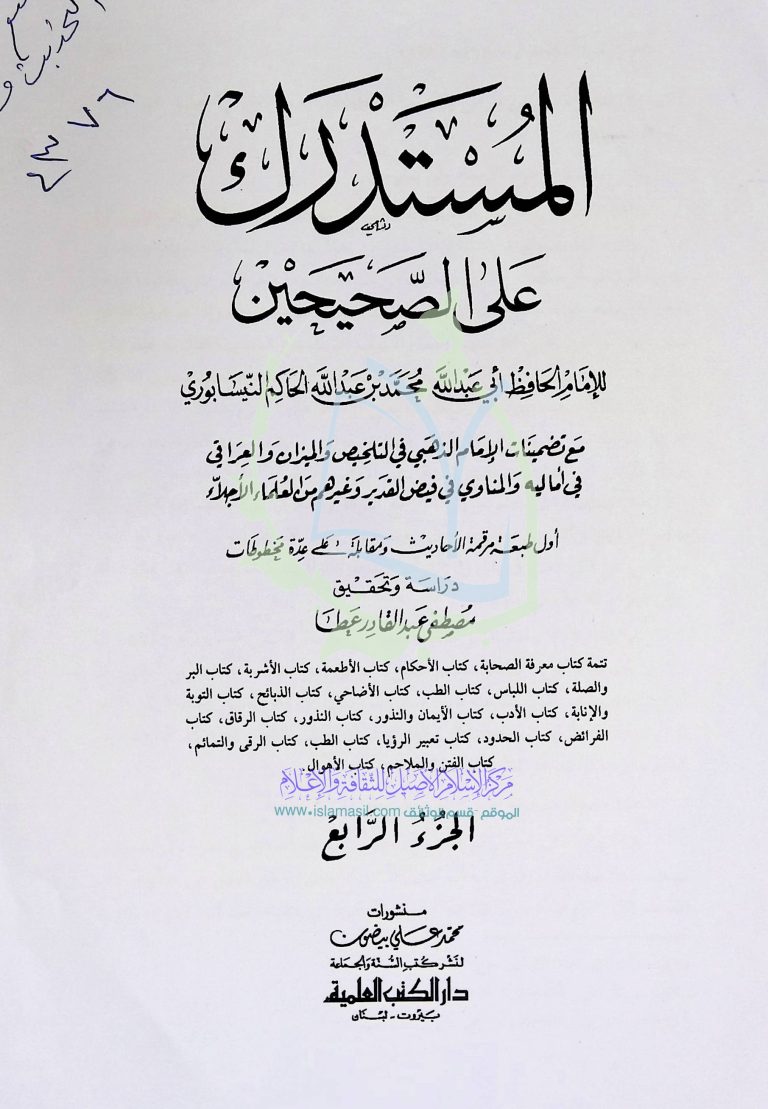 الحديث
٢٣٧٦
المُسْتَدْرَك
عَلى الصَّحِيحَيْن
للإمَام الحَافِظ أبي عَبْدالله مُحَمَّد بْن عَبْدالله الحَاكِم النّيسَابُوري
مَع تضمينات الإمَام الذهَبي في التلخيص والميزان والعِراقي
في أماليه والمناوي في فيض القدير وغيرهم من العُلمَاء الأجلاّء
أول طبعَة مرقمة الأحاديث ومقابلة على عدّة مخطوطات
دراسَة وتحقيق
مصطفى عبد القادر عَطا
تتمة كتاب معرفة الصحابة، كتاب الأحكام، كتاب الأطعمة، كتاب الأشربة، كتاب البر
والصلة، كتاب اللباس، كتاب الطب، كتاب الأضاحي، كتاب الذبائح، كتاب التوبة
والإنابة، كتاب الأدب، كتاب الأيمان والنذور، كتاب النذور، كتاب الرقاق، كتاب
الفرائض، كتاب الحدود، كتاب تعبير الرؤيا، كتاب الطب، كتاب الرقى والتمائم،
كتاب الفتن والملاحم، كتاب الأهوال.
مركز الإسلام الأصيل للثقافة والإعلام
الموقع - قسم الوثائق www.islamasil.com
الجُزءُ الرَّابعْ
منشورات
محمد علي بيضون
لنشر كتب السّنة والجماعة
دار الكتب العلمية
بيروت - لبنان